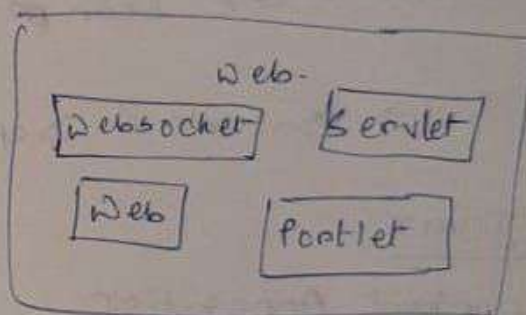 Web.
Websocket Servlet
Web Portlet